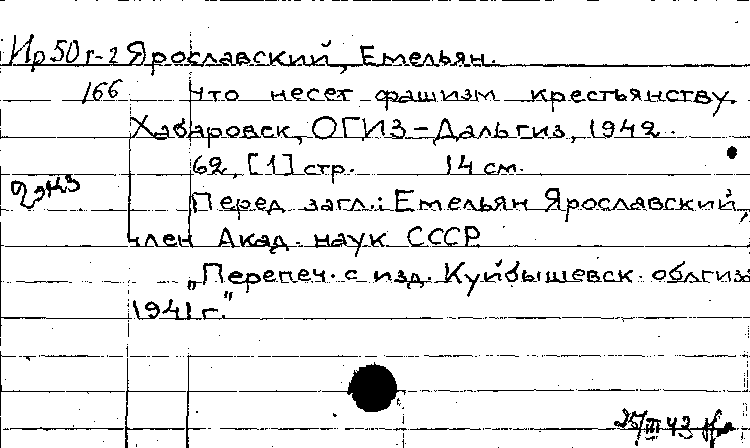 Ир50г-2 Ярославский, Емельян.
166 Что несет фашизм крестьянству.
Хабаровск, ОГИЗ-Дальгиз, 1942.
62, [1] стр. 14 см.
Перед загл.: Емельян Ярославский,
член Акад. наук СССР
„Перепеч. с изд. Куйбышевск. облгиза
1941 г."
25/III 43